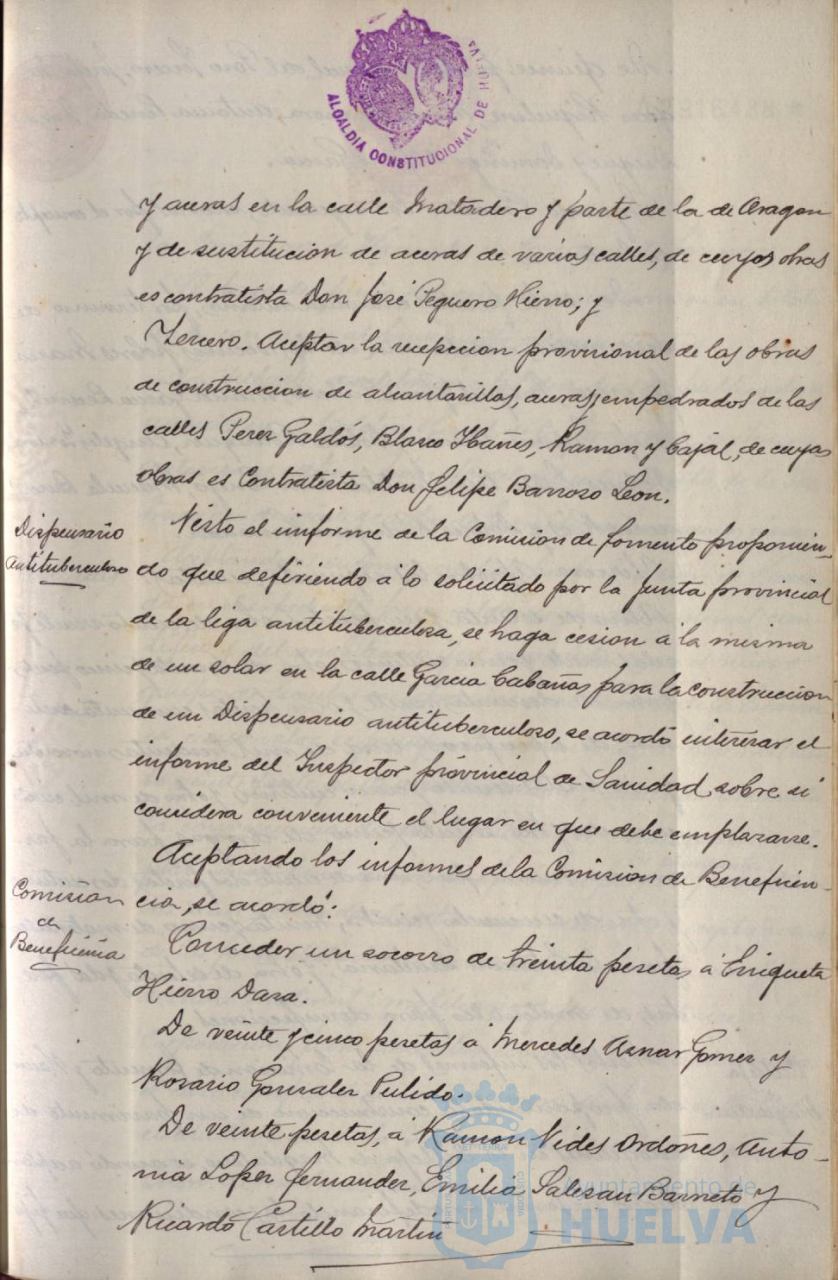 ALCALDIA CONSTITUCIONAL DE HUELVA
y aceras en la calle Matadero y parte de la de Aragon
y de sustitucion de aceras de varias calles, de cuyas obras
es contratista Don José Peguero Hierro; y
Tercero. Aceptar la recepcion provisional de las obras
de construccion de alcantarillas, aceras, empedrados de las
calles Perez Galdós, Blasco Ibañes, Ramon y Cajal, de cuyas
obras es Contratista Don Felipe Barroso Leon.
Dispensario
antituberculoso
Visto el informe de la Comision de fomento proponien-
do que defiriendo á lo solicitado por la Junta provincial
de la liga antituberculosa, se haga cesion á la misma
de un solar en la calle Garcia Cabañas para la construccion
de un Dispensario antituberculoso, se acordó interesar el
informe del Inspector provincial de Sanidad sobre si
considera conveniente el lugar en que debe emplazarse.
Comision
de
Beneficencia
Aceptando los informes de la Comision de Beneficen-
cia, se acordó:
Conceder un socorro de treinta pesetas á Enriqueta
Hierro Daza.
De veinte y cinco pesetas á Mercedes Aznar Gomez y
Rosario Gonzalez Pulido.
De veinte pesetas, á Ramon Vides Ordoñes, Anto-
nia Lopez Fernandez, Emilia Salesau Barneto y
Ricardo Castillo Martin
Ayuntamiento de
HUELVA